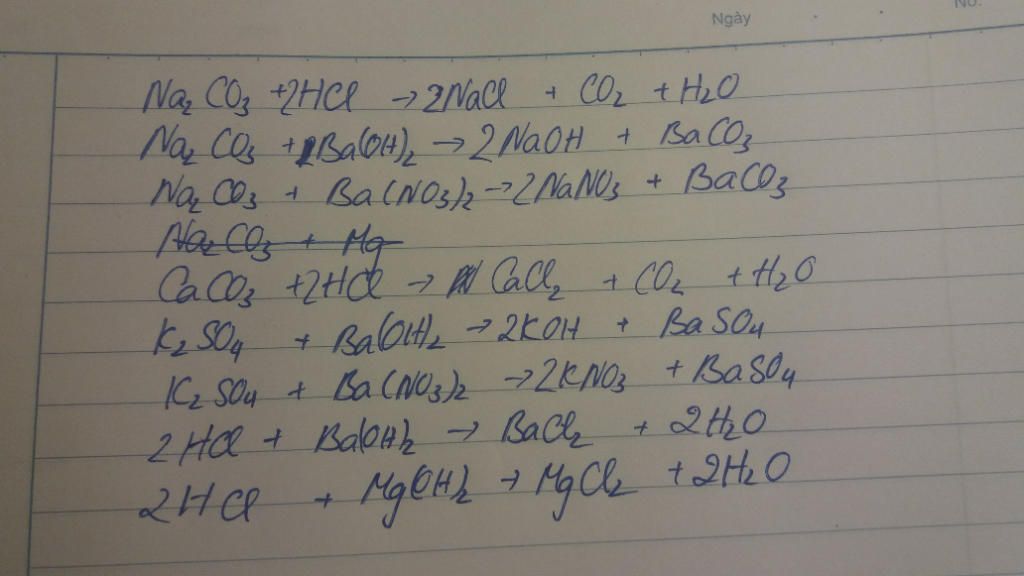 Ngày No.
Na₂CO₃ + 2HCl → 2NaCl + CO₂ + H₂O
Na₂CO₃ + Ba(OH)₂ → 2NaOH + BaCO₃
Na₂CO₃ + Ba(NO₃)₂ → 2NaNO₃ + BaCO₃
Na₂CO₃ + Mg
CaCO₃ + 2HCl → CaCl₂ + CO₂ + H₂O
K₂SO₄ + Ba(OH)₂ → 2KOH + BaSO₄
K₂SO₄ + Ba(NO₃)₂ → 2KNO₃ + BaSO₄
2HCl + Ba(OH)₂ → BaCl₂ + 2H₂O
2HCl + Mg(OH)₂ → MgCl₂ + 2H₂O